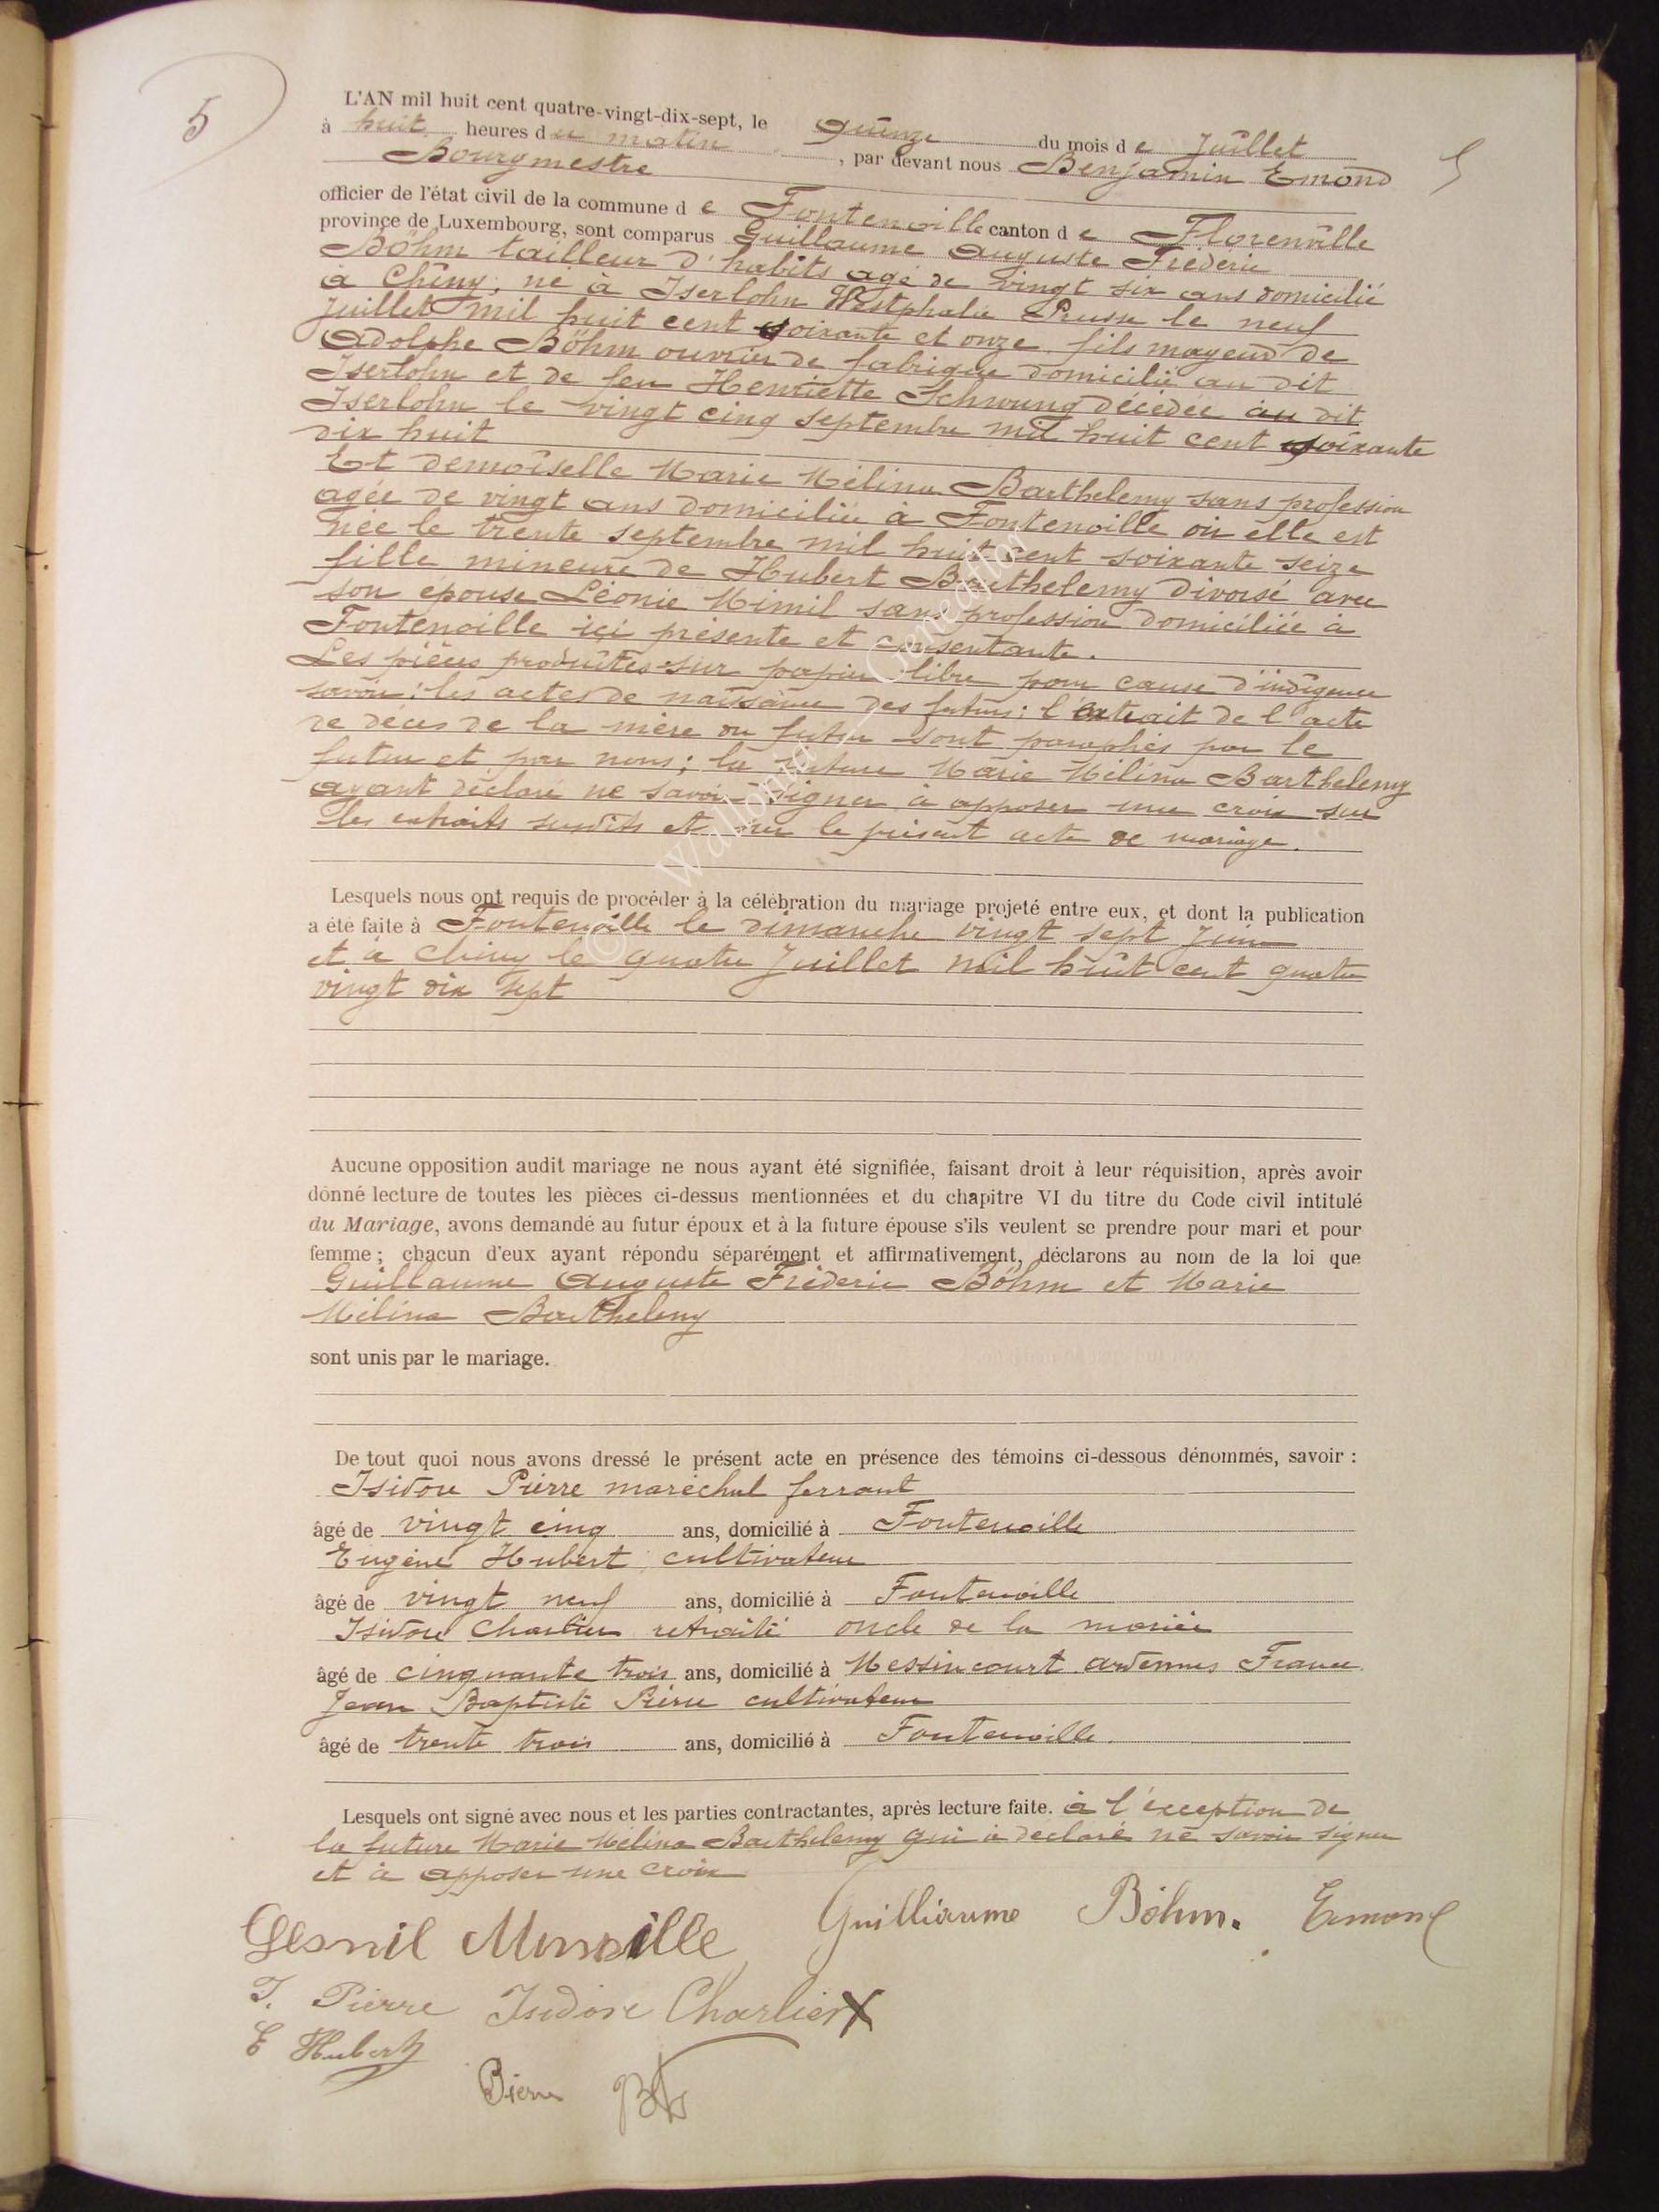 5
L'AN mil huit cent quatre-vingt-dix-sept, le quinze du mois de Juillet
à huit heures du matin, par devant nous Benjamin Emond
Bourgmestre
officier de l'état civil de la commune de Fontenoille canton de Florenville
province de Luxembourg, sont comparus Guillaume Auguste Fréderic
Böhm tailleur d'habits agé de vingt six ans domicilié
à Chiny, né à Iserlohn Westphalie Prusse le neuf
Juillet mil huit cent soixante et onze fils mageur de
Adolphe Böhm ouvrier de fabrique domicilié au dit
Iserlohn et de feu Henriette Schwung décédée au dit
Iserlohn le vingt cinq septembre mil huit cent soixante
dix huit
Et demoiselle Marie Mélina Barthelemy sans profession
agée de vingt ans domiciliée à Fontenoille où elle est
née le trente septembre mil huit cent soixante seize
fille mineure de Hubert Barthelemy divorsé avec
son épouse Léonie Mimil sans profession domiciliée à
Fontenoille ici présente et consentante.
Les pièces produites sur papier libre pour cause d'indigence
savoir: les actes de naissance des futurs; l'extrait de l'acte
de décès de la mère du futur sont paraphés par le
futur et par nous; la future Marie Mélina Barthelemy
ayant déclaré ne savoir signer à apposer une croix sur
les extraits susdits et sur le présent acte de mariage.
Lesquels nous ont requis de procéder à la célébration du mariage projeté entre eux, et dont la publication
a été faite à Fontenoille le dimanche vingt sept Juin
et à Chiny le quatre Juillet mil huit cent quatre
vingt dix sept
Aucune opposition audit mariage ne nous ayant été signifiée, faisant droit à leur réquisition, après avoir
donné lecture de toutes les pièces ci-dessus mentionnées et du chapitre VI du titre du Code civil intitulé
du Mariage, avons demandé au futur époux et à la future épouse s'ils veulent se prendre pour mari et pour
femme; chacun d'eux ayant répondu séparément et affirmativement, déclarons au nom de la loi que
Guillaume Auguste Fréderic Böhm et Marie
Mélina Barthelemy
sont unis par le mariage.
De tout quoi nous avons dressé le présent acte en présence des témoins ci-dessous dénommés, savoir :
Isidore Pierre maréchal ferrant
âgé de vingt cinq ans, domicilié à Fontenoille
Eugène Hubert cultivateur
âgé de vingt neuf ans, domicilié à Fontenoille
Isidore Charlier retraité oncle de la mariée
âgé de cinquante trois ans, domicilié à Messincourt ardennes France
Jean Baptiste Pierre cultivateur
âgé de trente trois ans, domicilié à Fontenoille.
Lesquels ont signé avec nous et les parties contractantes, après lecture faite. à l'éxception de
la future Marie Mélina Barthelemy qui à declaré ne savoir signer
et à apposer une croix
Guilliaume Böhm. Emond
I. Pierre Isidore Charlier X
E Hubert
Pierre
© Wallonia - Geneaflor